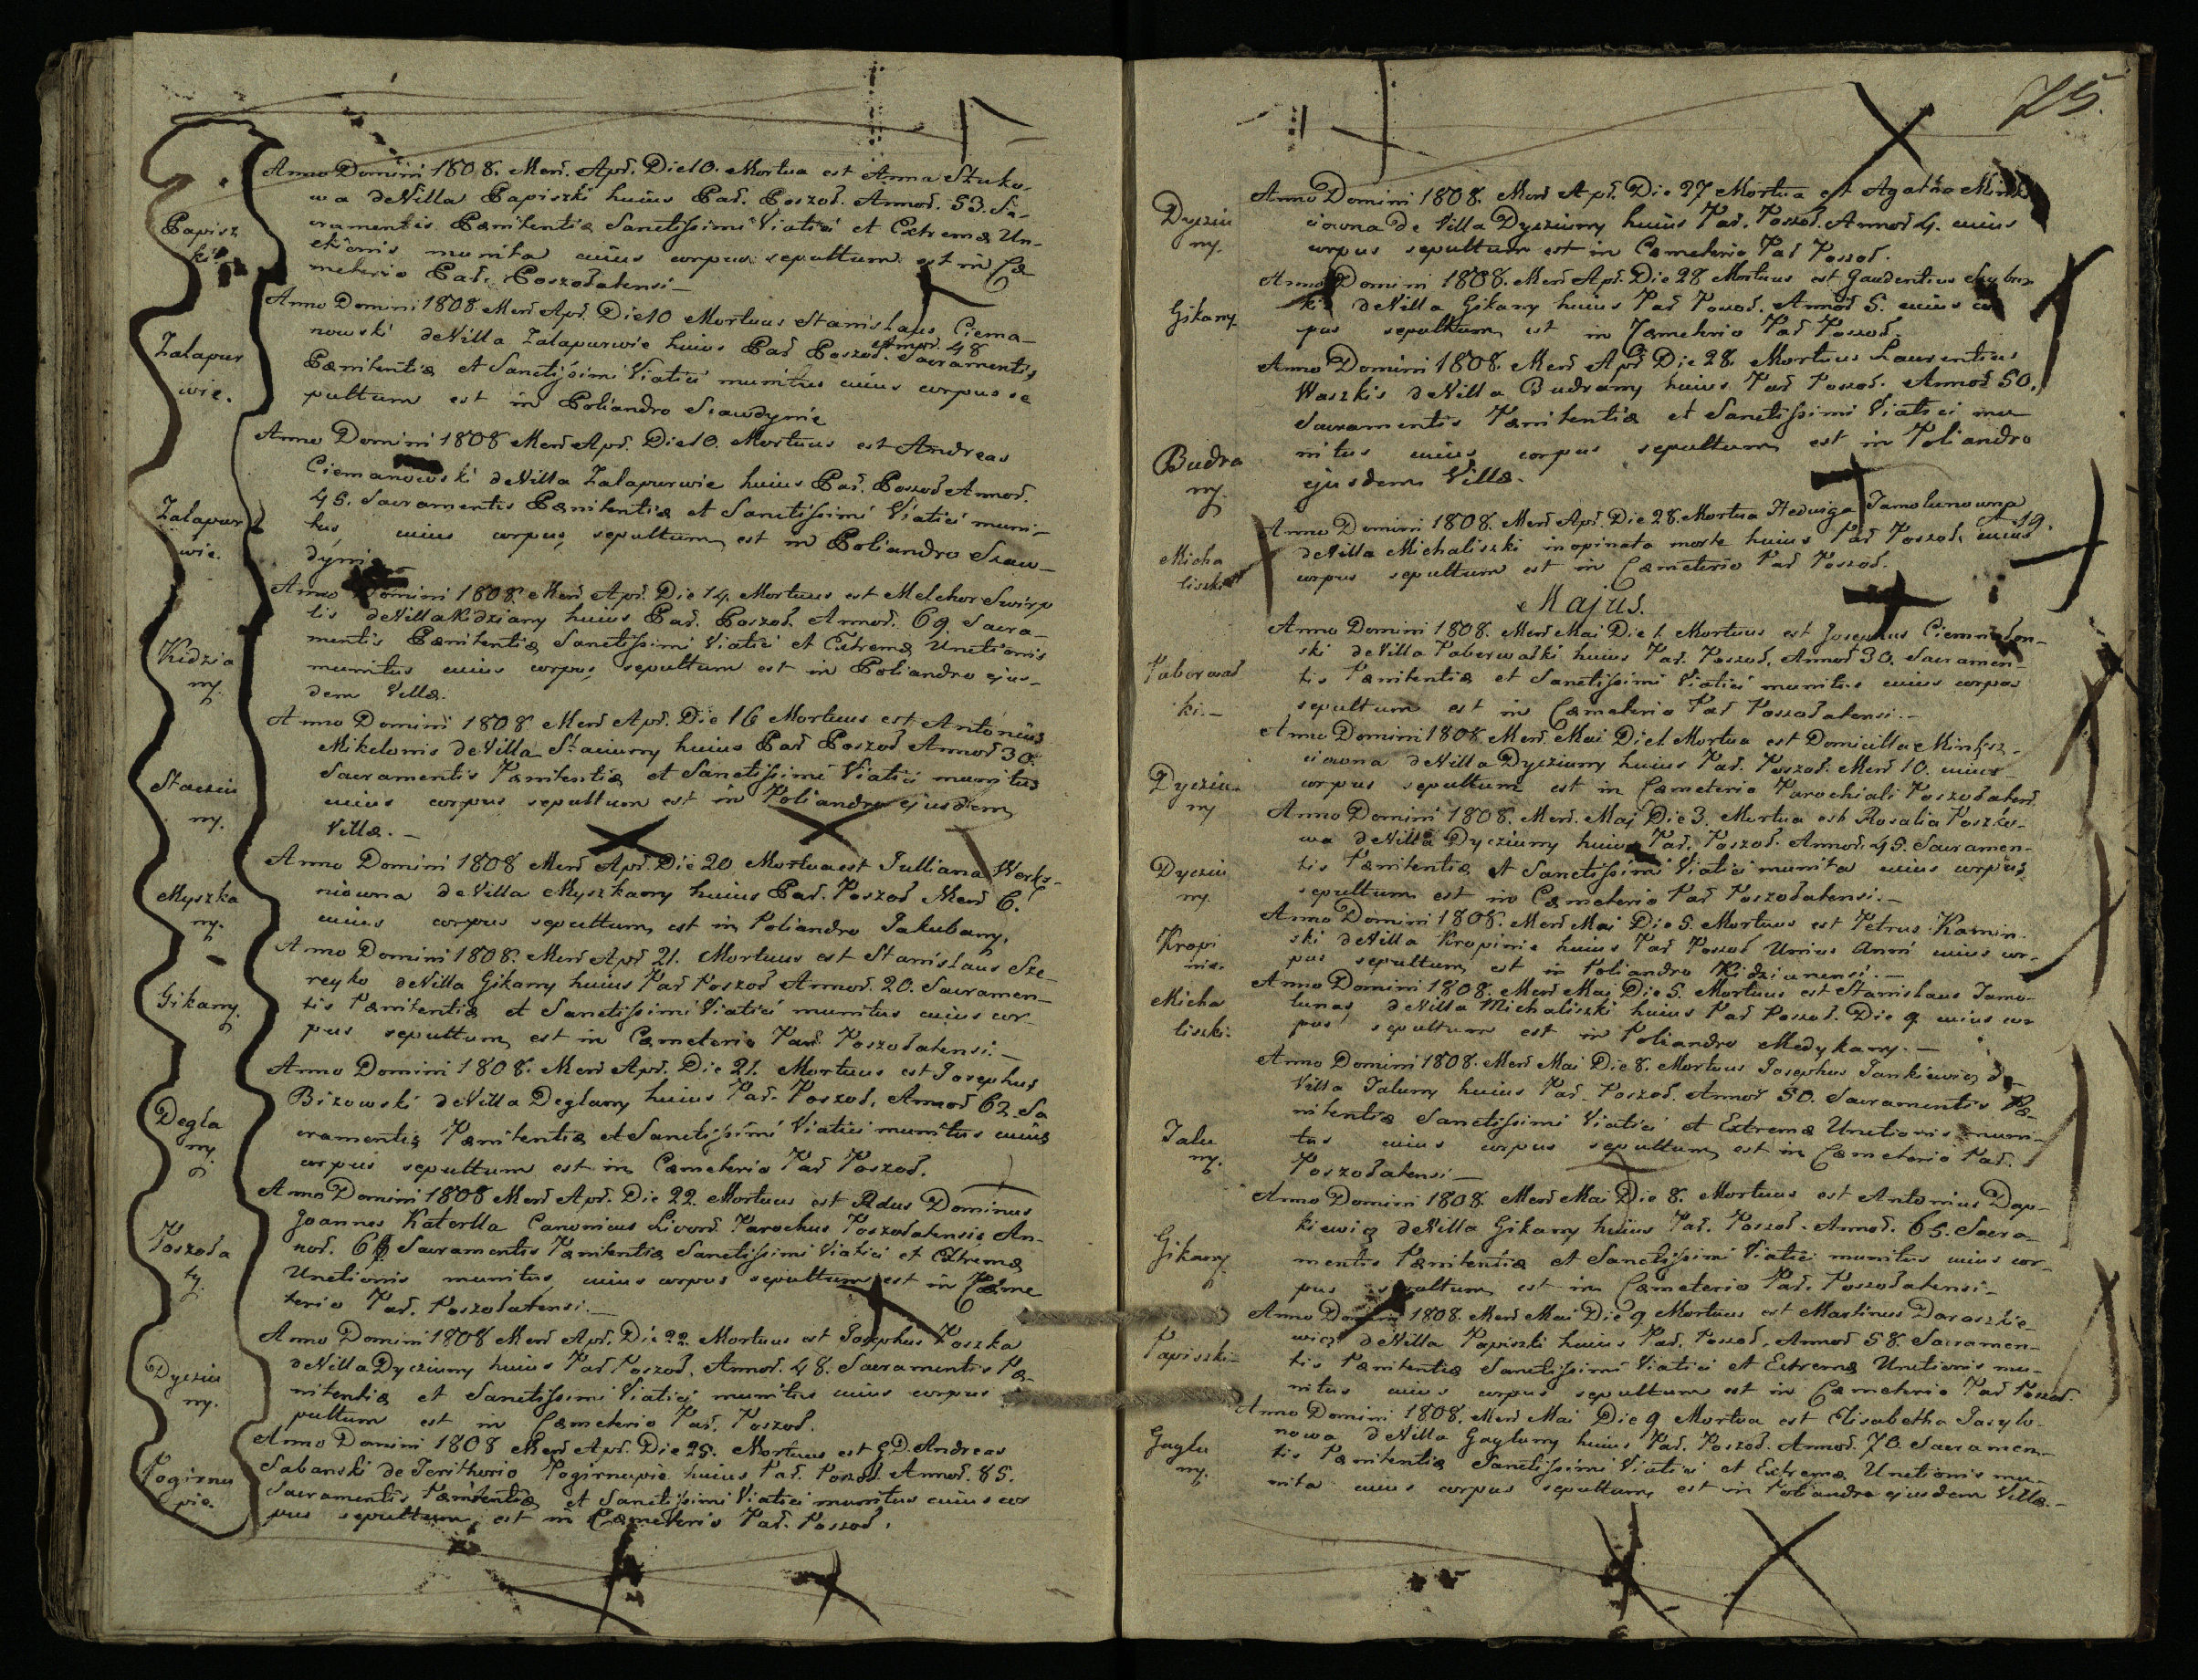 Anno Domini 1808. Mens. Apr. Die 10. Mortua est Anna Sztuko-
wa de Villa Papiszki huius Par. Poszoł. Annor. 53. Sa-
cramentis Pænitentiæ Sanctissimi Viatici et Extremæ Un-
ctionis munita cuius corpus sepultum est in Cæ-
meterio Par. Poszołatensi
Papisz
ki.
Anno Domini 1808 Mens Apr. Die 10 Mortuus Stanislaus Ciema-
nowski de Villa Załapurwie huius Par Poszoł. Annor. 48 Sacramentis
Pænitentiæ et Sanctissimi Viatici munitus cuius corpus se
pultum est in Poliandro Szawdynie
Załapur
wie.
Anno Domini 1808 Mens Apr. Die 10. Mortuus est Andreas
Ciemanowski de Villa Załapurwie huius Par. Poszoł Annor.
45. Sacramentis Pænitentiæ et Sanctissimi Viatici muni-
tus, cuius corpus sepultum est in Poliandro Szaw-
dynie
Załapur
wie.
Anno Domini 1808 Mens Apr. Die 14 Mortuus est Melchor Swirp
tis de Villa Kidziany huius Par. Poszoł. Annor. 69. Sacra-
mentis Pænitentiæ Sanctissimi Viatici et Extremæ Unctionis
munitus cuius corpus sepultum est in Poliandro ejus-
dem Villæ.
Kidzia
ny.
Anno Domini 1808 Mens Apr. Die 16 Mortuus est Antonius
Mikelonis de Villa Staciuny huius Par Poszoł Annor 30.
Sacramentis Pænitentiæ et Sanctissimi Viatici munitus
cuius corpus sepultum est in Poliandro ejusdem
Villæ.
Staciu
ny.
Anno Domini 1808 Mens Apr. Die 20 Mortua est Julliana
niowna de Villa Myszkany huius Par. Poszoł Mens 6.
cuius corpus sepultum est in Poliandro Jakubany.
Myszka
ny.
Anno Domini 1808. Mens Apr 21. Mortuus est Stanislaus Sze-
reyko de Villa Gikany huius Par Poszoł Annor. 20. Sacramen-
tis Pænitentiæ et Sanctissimi Viatici munitus cuius cor-
pus sepultum est in Cæmeterio Par. Poszołatensi.
Gikany.
Anno Domini 1808. Mens Apr. Die 21. Mortuus est Josephus
Bizowski de Villa Deglany huius Par. Poszoł. Annor 62. Sa
cramentis Pænitentiæ et Sanctissimi Viatici munitus cuius
corpus sepultum est in Cæmeterio Par Poszoł.
Degla
ny.
Anno Domini 1808 Mens Apr. Die 22 Mortuus est Rdus Dominus
Joannes Katerlla Canonicus Livon. Parochus Poszołatensis An-
nor. Sacramentis Pænitentiæ Sanctissimi Viatici et Extremæ
Unctionis munitus, cuius corpus sepultum est in Cæme
terio Par. Poszołatensi.
Poszoła
ty.
Anno Domini 1808 Mens Apr. Die 22 Mortuus est Josephus Poszka
de Villa Dycziuny huius Par Poszoł. Annor. 48. Sacramentis Pæ-
nitentiæ et Sanctissimi Viatici munitus cuius corpus
pultum est in Cæmeterio Par. Poszoł.
Dycziu
ny.
Anno Domini 1808 Mens Apr. Die 25. Mortuus est G.D. Andreas
Sabanski de Teritorio Pogirnupie huius Par. Poszoł. Annor. 85.
Sacramentis Pænitentiæ et Sanctissimi Viatici munitus cuius cor
pus sepultum est in Cæmeterio Par. Poszoł.
Pogirnu
pie.
75.
Anno Domini 1808. Mens Apr. Die 27 Mortua est Agatha
ciowna de Villa Dycziuny huius Par. Poszoł. Annor 4. cuius
corpus sepultum est in Cæmeterio Par Poszoł.
Dycziu
ny.
Anno Domini 1808. Mens Apr. Die 28 Mortuus est Gaudentius
ki de Villa Gikany huius Par Poszoł. Annor 5. cuius cor
pus sepultum est in Cæmeterio Par Poszoł.
Gikany.
Anno Domini 1808. Mens Apr Die 28. Mortuus Laurentius
Waszkis de Villa Budrany huius Par Poszoł. Annor 50.
Sacramentis Pænitentiæ et Sanctissimi Viatici mu
nitus cuius corpus sepultum est in Poliandro
ejusdem Villæ.
Budra
ny.
Anno Domini 1808. Mens Apr. Die 28. Mortua Hedviga Jamolunowna
de Villa Michaliszki inopinata morte huius Par Poszoł. A. 19. cuius
corpus sepultum est in Cæmeterio Par Poszoł.
Micha
liszki
Majus.
Anno Domini 1808. Mens Mai Die 1. Mortuus est Josephus Ciemnołon-
ski de Villa Poberwałki huius Par. Poszoł. Annor 30. Sacramen-
tis Pænitentiæ et Sanctissimi Viatici munitus cuius corpus
sepultum est in Cæmeterio Par Poszołatensi.
Poberwał
ki.
Anno Domini 1808 Mens Mai Die 1. Mortua est Domicilla
ciowna de Villa Dycziuny huius Par. Poszoł. Mens 10. cuius
corpus sepultum est in Cæmeterio Parochiali Poszołatens.
Dycziu
ny
Anno Domini 1808. Mens. Maj Die 3. Mortua est Rosalia Poszko-
wa de Villa Dycziuny huius Par. Poszoł. Annor. 45. Sacramen-
tis Pænitentiæ et Sanctissimi Viatici munita cuius corpus
sepultum est in Cæmeterio Par Poszołatensi.
Dycziu
ny.
Anno Domini 1808. Mens Mai Die 5. Mortuus est Petrus Kamin-
ski de Villa Kropinie huius Par Poszoł Unius Anni cuius cor-
pus sepultum est in Poliandro Kidzianensi.
Kropi
nie.
Anno Domini 1808. Mens Mai Die 5. Mortuus est Stanislaus Jamo-
lunas de Villa Michaliszki huius Par Poszoł. Die 9 cuius cor
pus sepultum est in Poliandro Medykany.
Micha
liszki.
Anno Domini 1808. Mens Mai Die 8. Mortuus Josephus Jankiewicz de
Villa Jaluny huius Par. Poszoł. Annor 50. Sacramentis Pæ-
nitentiæ Sanctissimi Viatici et Extremæ Unctionis muni-
tus cuius corpus sepultum est in Cæmeterio Par.
Poszołatensi
Jalu
ny.
Anno Domini 1808. Mens Mai Die 8. Mortuus est Antonius Dap-
kiewicz de Villa Gikany huius Par. Poszoł. Annor. 65. Sacra-
mentis Pænitentiæ et Sanctissimi Viatici munitus cuius cor-
pus sepultum est in Cæmeterio Par. Poszołatensi.
Gikany.
Anno Domini 1808. Mens Mai Die 9 Mortuus est Martinus Daraszkie-
wicz de Villa Papiszki huius Par. Poszoł. Annor 58. Sacramen-
tis Pænitentiæ Sanctissimi Viatici et Extremæ Unctionis mu-
nitus cuius corpus sepultum est in Cæmeterio Par Poszoł.
Papiszki
Anno Domini 1808. Mens Mai Die 9 Mortua est Elisabetha Jasylo-
nowa de Villa Gayluny huius Par. Poszoł. Annor. 70. Sacramen-
tis Pænitentiæ Sanctissimi Viatici et Extremæ Unctionis mu-
nita cuius corpus sepultum est in Poliandro ejusdem Villæ.
Gaylu
ny.